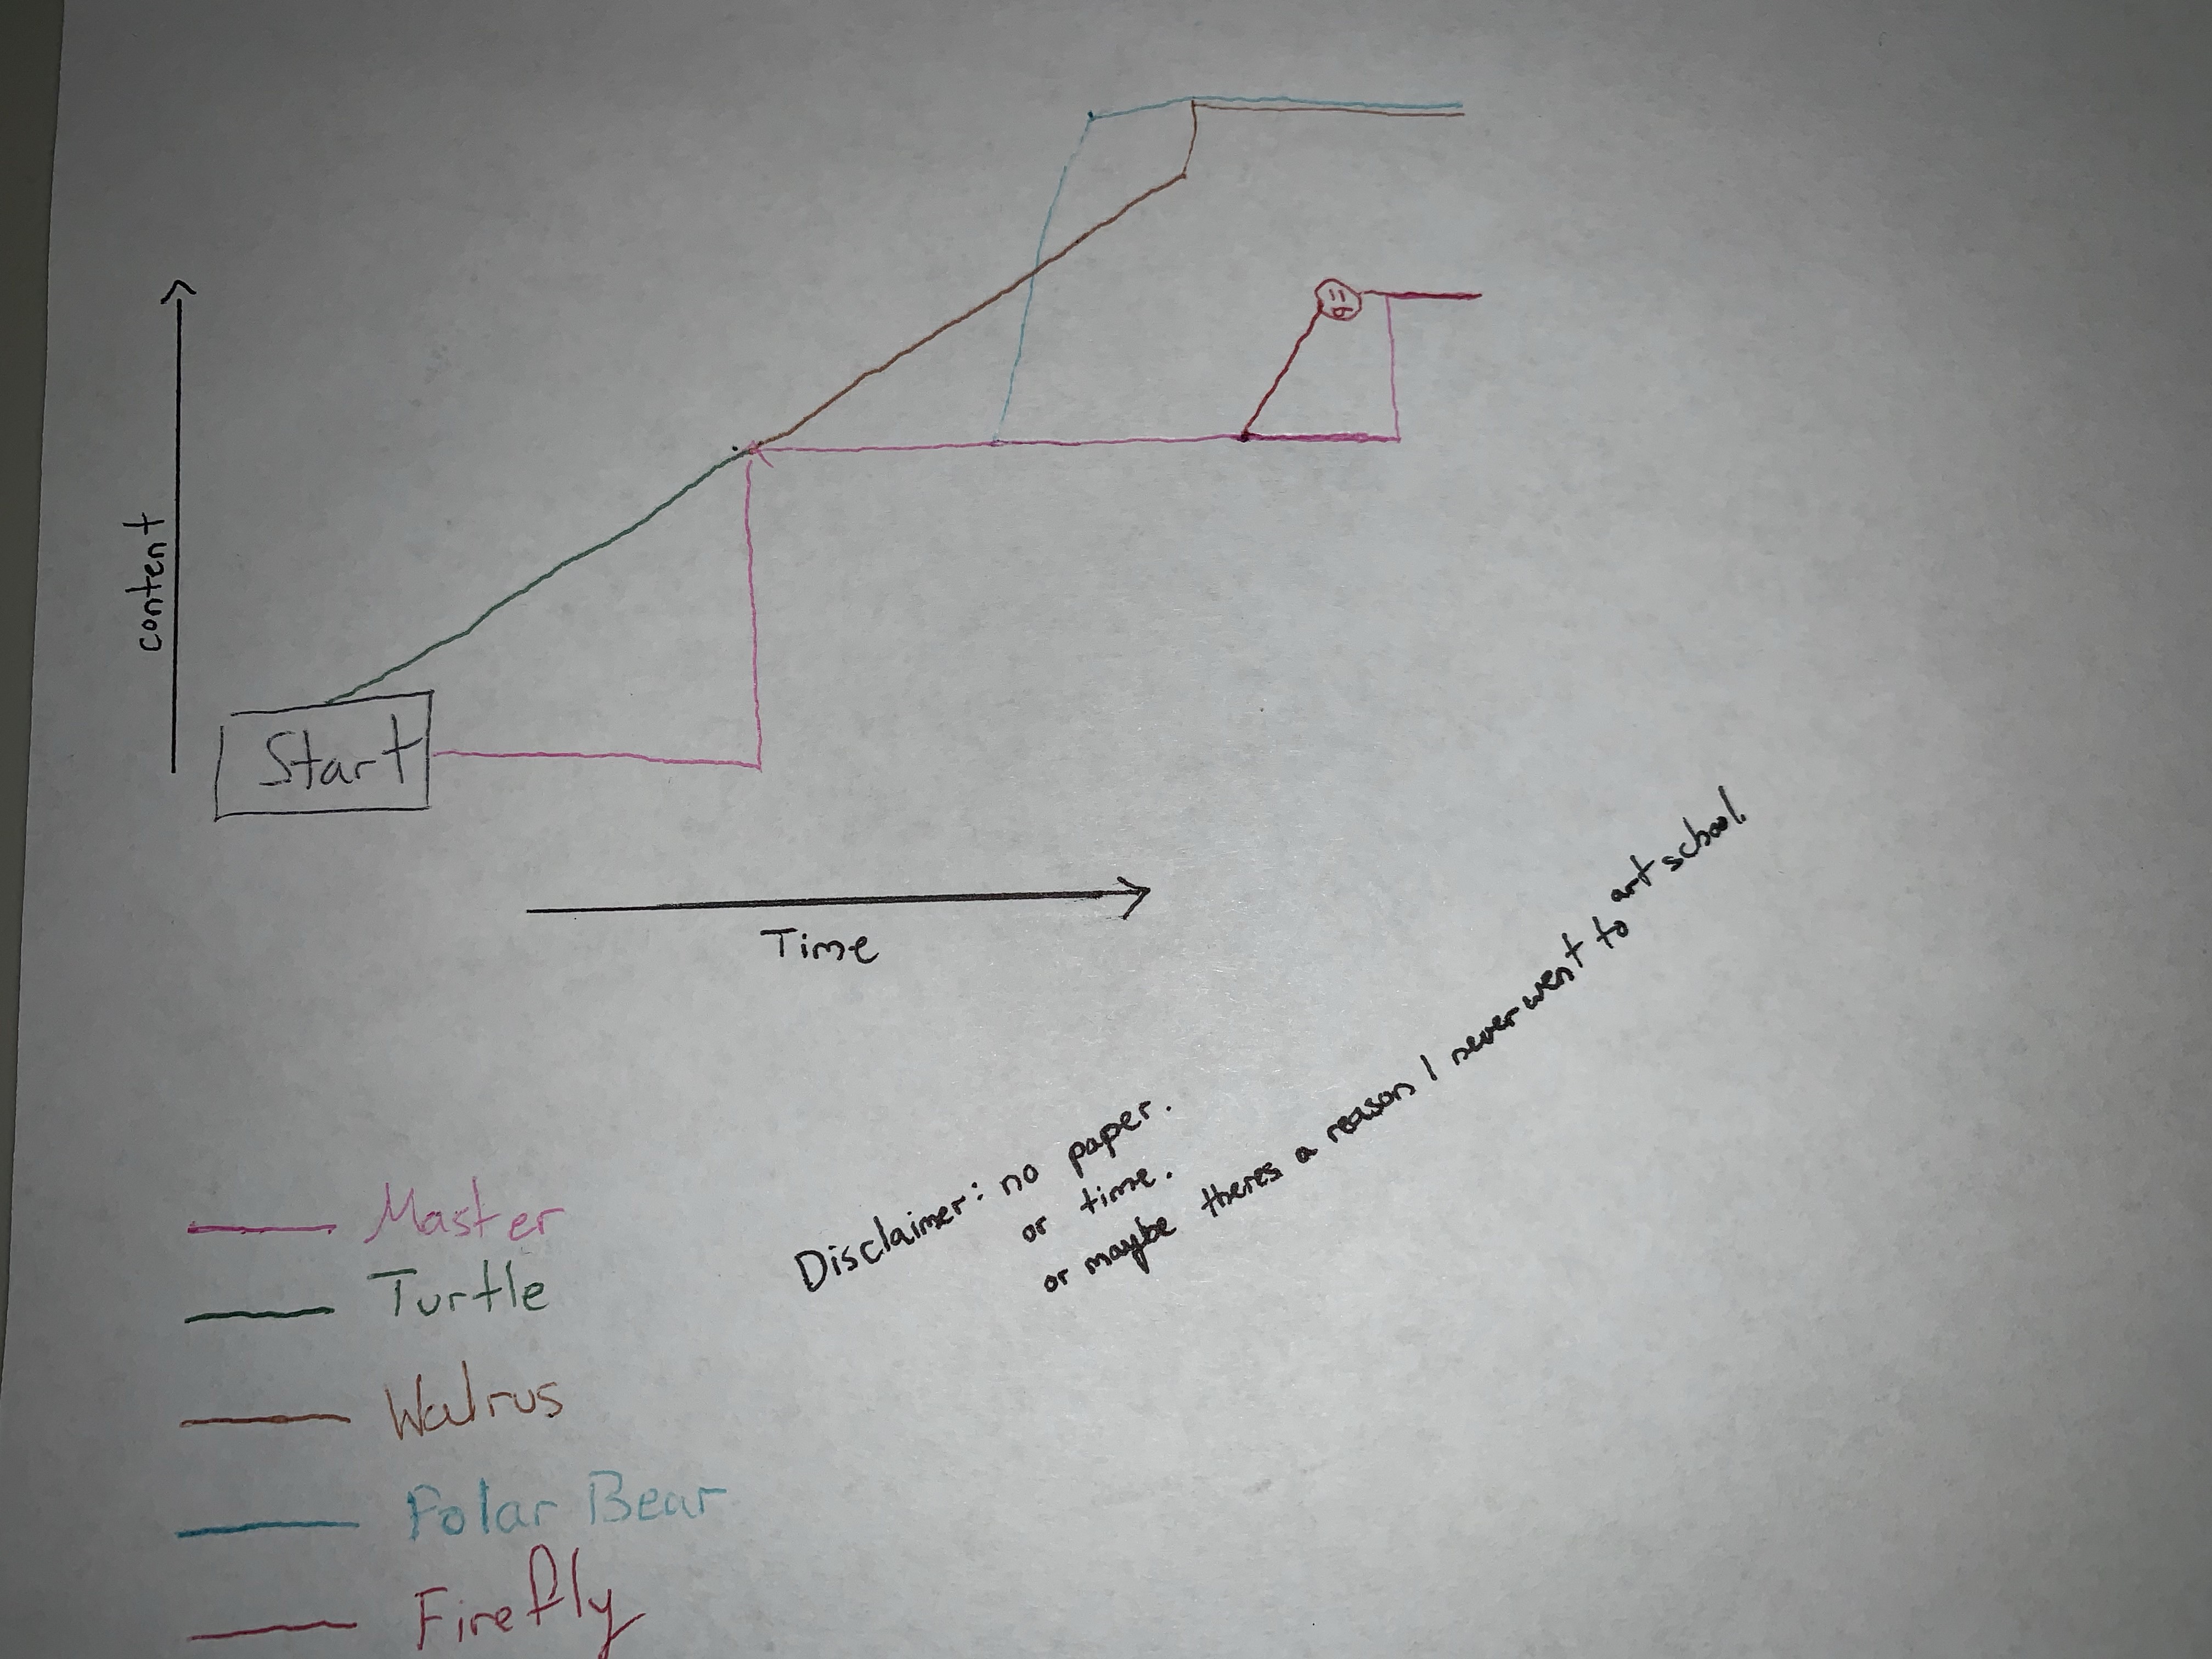 content
Start
Time
Master
Turtle
Walrus
Polar Bear
Firefly
Disclaimer: no paper.
or time.
or maybe theres a reason I never went to art school.